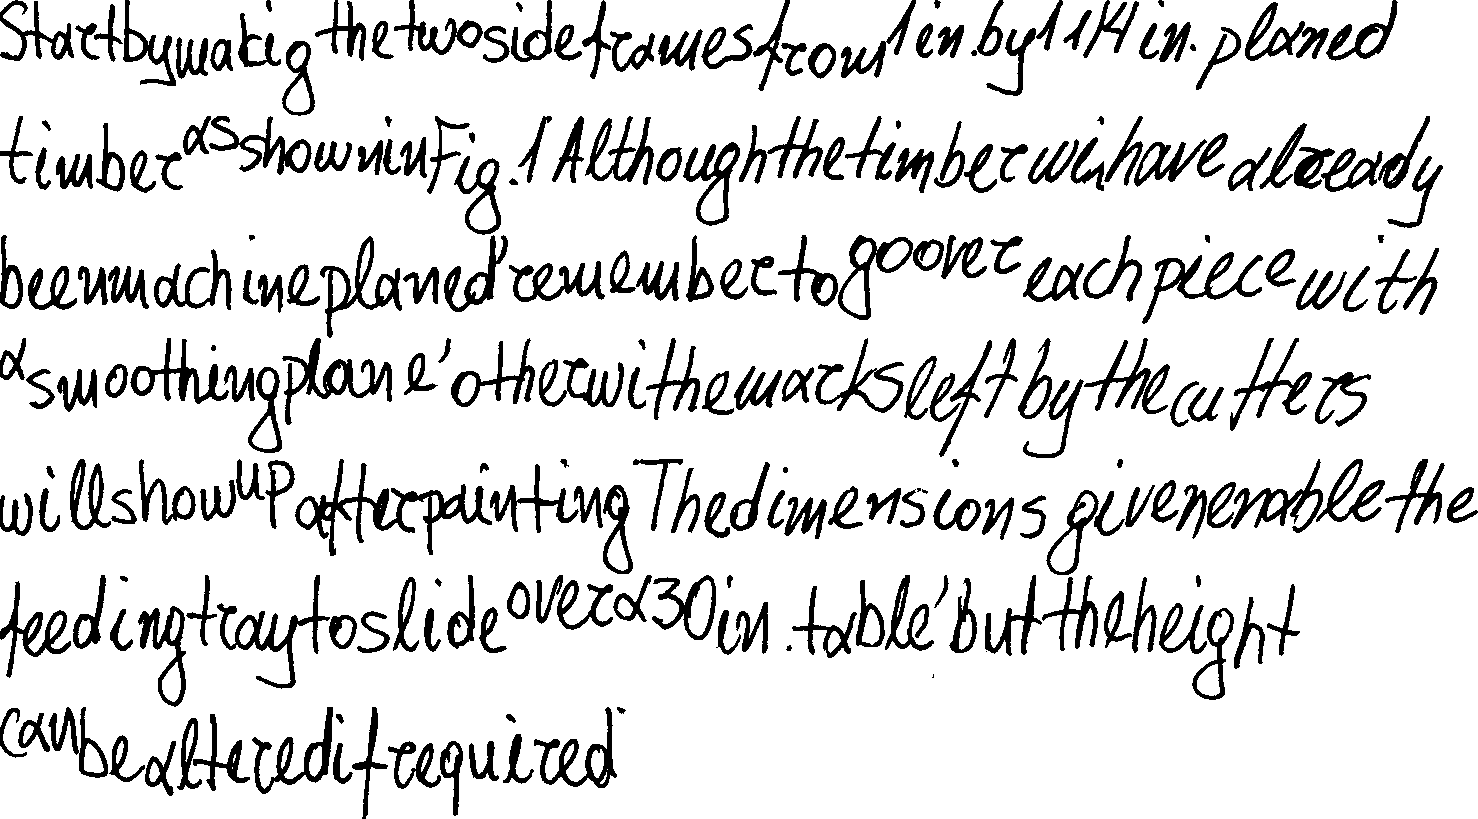 Start by makig the two side frames from 1 in. by 1 1/4 in. planed
timber as shown in Fig. 1 Although the timber will have already
been machine planed, remember to go over each piece with
a smoothing plane, otherwi the marks left by the cutters
will show up after painting The dimensions given enable the
feeding tray to slide over a 30 in. table, but the height
can be altered if required